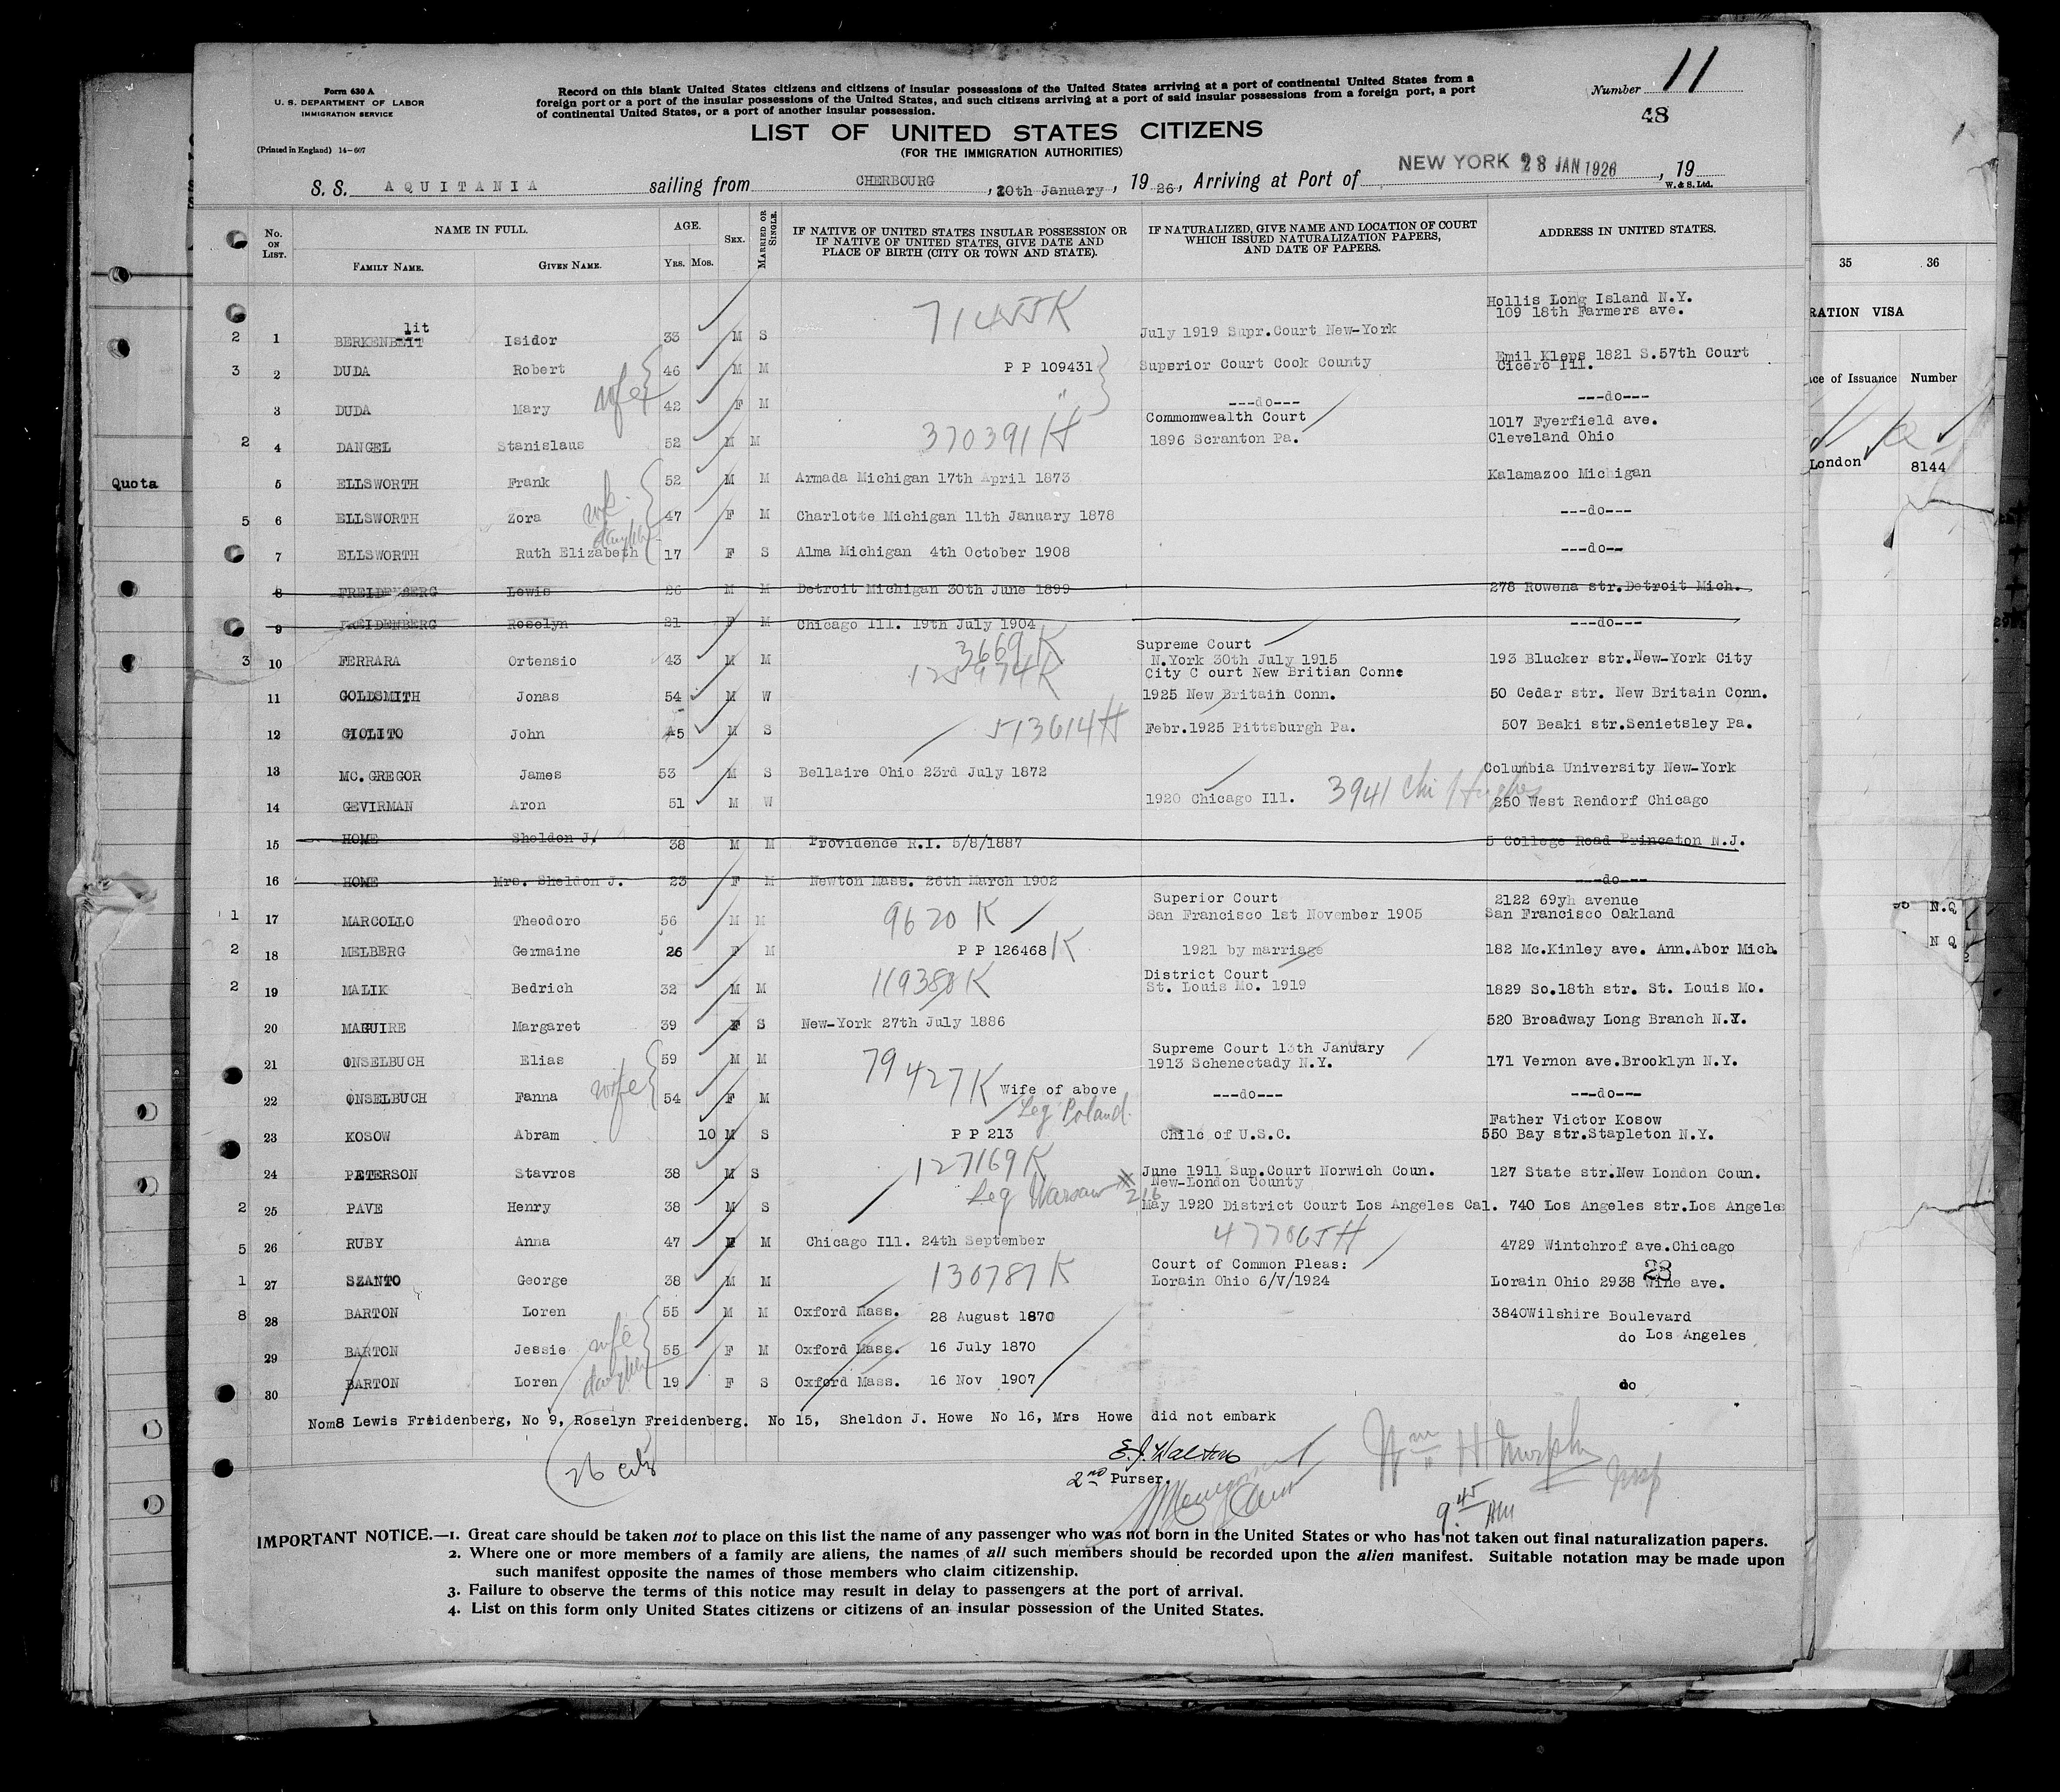 Form 630 A
U. S. DEPARTMENT OF LABOR
IMMIGRATION SERVICE
(Printed in England) 14-607
Record on this blank United States citizens and citizens of insular possessions of the United States arriving at a port of continental United States from a
foreign port or a port of the insular possessions of the United States, and such citizens arriving at a port of said insular possessions from a foreign port, a port
of continental United States, or a port of another insular possession.
Number 11
48
LIST OF UNITED STATES CITIZENS
(FOR THE IMMIGRATION AUTHORITIES)
S. S. AQUITANIA sailing from CHERBOURG, 20th January, 1926, Arriving at Port of NEW YORK 28 JAN 1926, 19
W. & S. Ltd.
No. ON LIST. NAME IN FULL. AGE. SEX. MARRIED OR SINGLE. IF NATIVE OF UNITED STATES INSULAR POSSESSION OR IF NATIVE OF UNITED STATES, GIVE DATE AND PLACE OF BIRTH (CITY OR TOWN AND STATE). IF NATURALIZED, GIVE NAME AND LOCATION OF COURT WHICH ISSUED NATURALIZATION PAPERS, AND DATE OF PAPERS. ADDRESS IN UNITED STATES.
FAMILY NAME. GIVEN NAME. YRS. MOS.
Hollis Long Island N.Y.
109 18th Farmers ave.
lit
2 1 BERKENBEIT Isidor 33 M S 71455K July 1919 Supr.Court New-York
3 2 DUDA Robert 46 M M P P 109431 Superior Court Cook County Emil Kleps 1821 S.57th Court
Cicero Ill.
3 DUDA Mary wife 42 F M " ---do--- ---do---
Commomwealth Court 1017 Fyerfield ave.
2 4 DANGEL Stanislaus 52 M M 370391 H 1896 Scranton Pa. Cleveland Ohio
5 ELLSWORTH Frank 52 M M Armada Michigan 17th April 1873 Kalamazoo Michigan
5 6 ELLSWORTH Zora wf. 47 F M Charlotte Michigan 11th January 1878 ---do---
7 ELLSWORTH Ruth Elizabeth daughter 17 F S Alma Michigan 4th October 1908 ---do--
8 FREIDENBERG Lewis 26 M M Detroit Michigan 30th June 1899 278 Rowena str.Detroit Mich.
9 FREIDENBERG Roselyn 21 F M Chicago Ill. 19th July 1904 ---do---
Supreme Court
3 10 FERRARA Ortensio 43 M M 3669 K N.York 30th July 1915 193 Blucker str.New-York City
125974K City C ourt New Britian Conne
11 GOLDSMITH Jonas 54 M W 1925 New Britain Conn. 50 Cedar str. New Britain Conn.
12 GIOLITO John 45 M S 513614 H Febr.1925 Pittsburgh Pa. 507 Beaki str.Senietsley Pa.
13 MC.GREGOR James 53 M S Bellaire Ohio 23rd July 1872 Columbia University New-York
14 GEVIRMAN Aron 51 M W 1920 Chicago Ill. 3941 Chi Hughes 250 West Rendorf Chicago
15 HOME Sheldon J. 38 M M Providence R.I. 5/8/1887 5 College Road Princeton N.J.
16 HOME Mrs. Sheldon J. 23 F M Newton Mass. 26th March 1902 ---do---
Superior Court 2122 69yh avenue
1 17 MARCOLLO Theodoro 56 M M 9620 K San Francisco 1st November 1905 San Francisco Oakland
2 18 MELBERG Germaine 26 F M P P 126468 K 1921 by marriage 182 Mc.Kinley ave. Ann.Abor Mich.
District Court
2 19 MALIK Bedrich 32 M M 119380 K St. Louis Mo. 1919 1829 So.18th str. St. Louis Mo.
20 MAGUIRE Margaret 39 F S New-York 27th July 1886 520 Broadway Long Branch N.Y.
Supreme Court 13th January
21 ONSELBUCH Elias 59 M M 79427K 1913 Schenectady N.Y. 171 Vernon ave.Brooklyn N.Y.
22 ONSELBUCH Fanna wife 54 F M Wife of above ---do--- ---do---
Leg Poland. Father Victor Kosow
23 KOSOW Abram 10 M S P P 213 Chilc of U.S.C. 550 Bay str.Stapleton N.Y.
24 PETERSON Stavros 38 M S 127169K June 1911 Sup.Court Norwich Coun. 127 State str.New London Coun.
Leg Warsaw # 216 New-London County
2 25 PAVE Henry 38 M S May 1920 District Court Los Angeles Cal. 740 Los Angeles str.Los Angeles
5 26 RUBY Anna 47 F M Chicago Ill. 24th September 477065H 4729 Wintchrof ave.Chicago
Court of Common Pleas: 28
1 27 SZANTO George 38 M M 130787 K Lorain Ohio 6/V/1924 Lorain Ohio 2938 Wine ave.
8 28 BARTON Loren 55 M M Oxford Mass. 28 August 1870 3840Wilshire Boulevard
do Los Angeles
29 BARTON Jessie wife 55 F M Oxford Mass. 16 July 1870
30 BARTON Loren daughter 19 F S Oxford Mass. 16 Nov 1907 do
Nom8 Lewis Freidenberg, No 9, Roselyn Freidenberg. No 15, Sheldon J. Howe No 16, Mrs Howe did not embark
26 cits
E.J. Walton
2nd Purser.
Wm H Murphy Insp
9.45 AM
IMPORTANT NOTICE.—1. Great care should be taken not to place on this list the name of any passenger who was not born in the United States or who has not taken out final naturalization papers.
2. Where one or more members of a family are aliens, the names of all such members should be recorded upon the alien manifest. Suitable notation may be made upon
such manifest opposite the names of those members who claim citizenship.
3. Failure to observe the terms of this notice may result in delay to passengers at the port of arrival.
4. List on this form only United States citizens or citizens of an insular possession of the United States.
Quota
35 36
RATION VISA
ce of Issuance Number
London 8144
N.Q
N Q